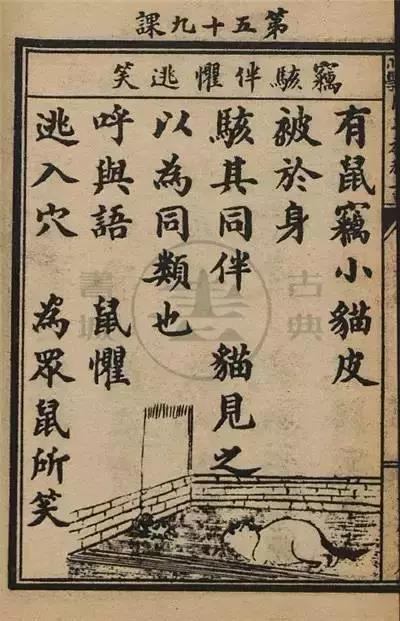 第五十九課
竊駭伴懼逃笑
有鼠竊小貓皮
被於身
駭其同伴　貓見之
以為同類也
呼與語　鼠懼
逃入穴　為眾鼠所笑
古典書城